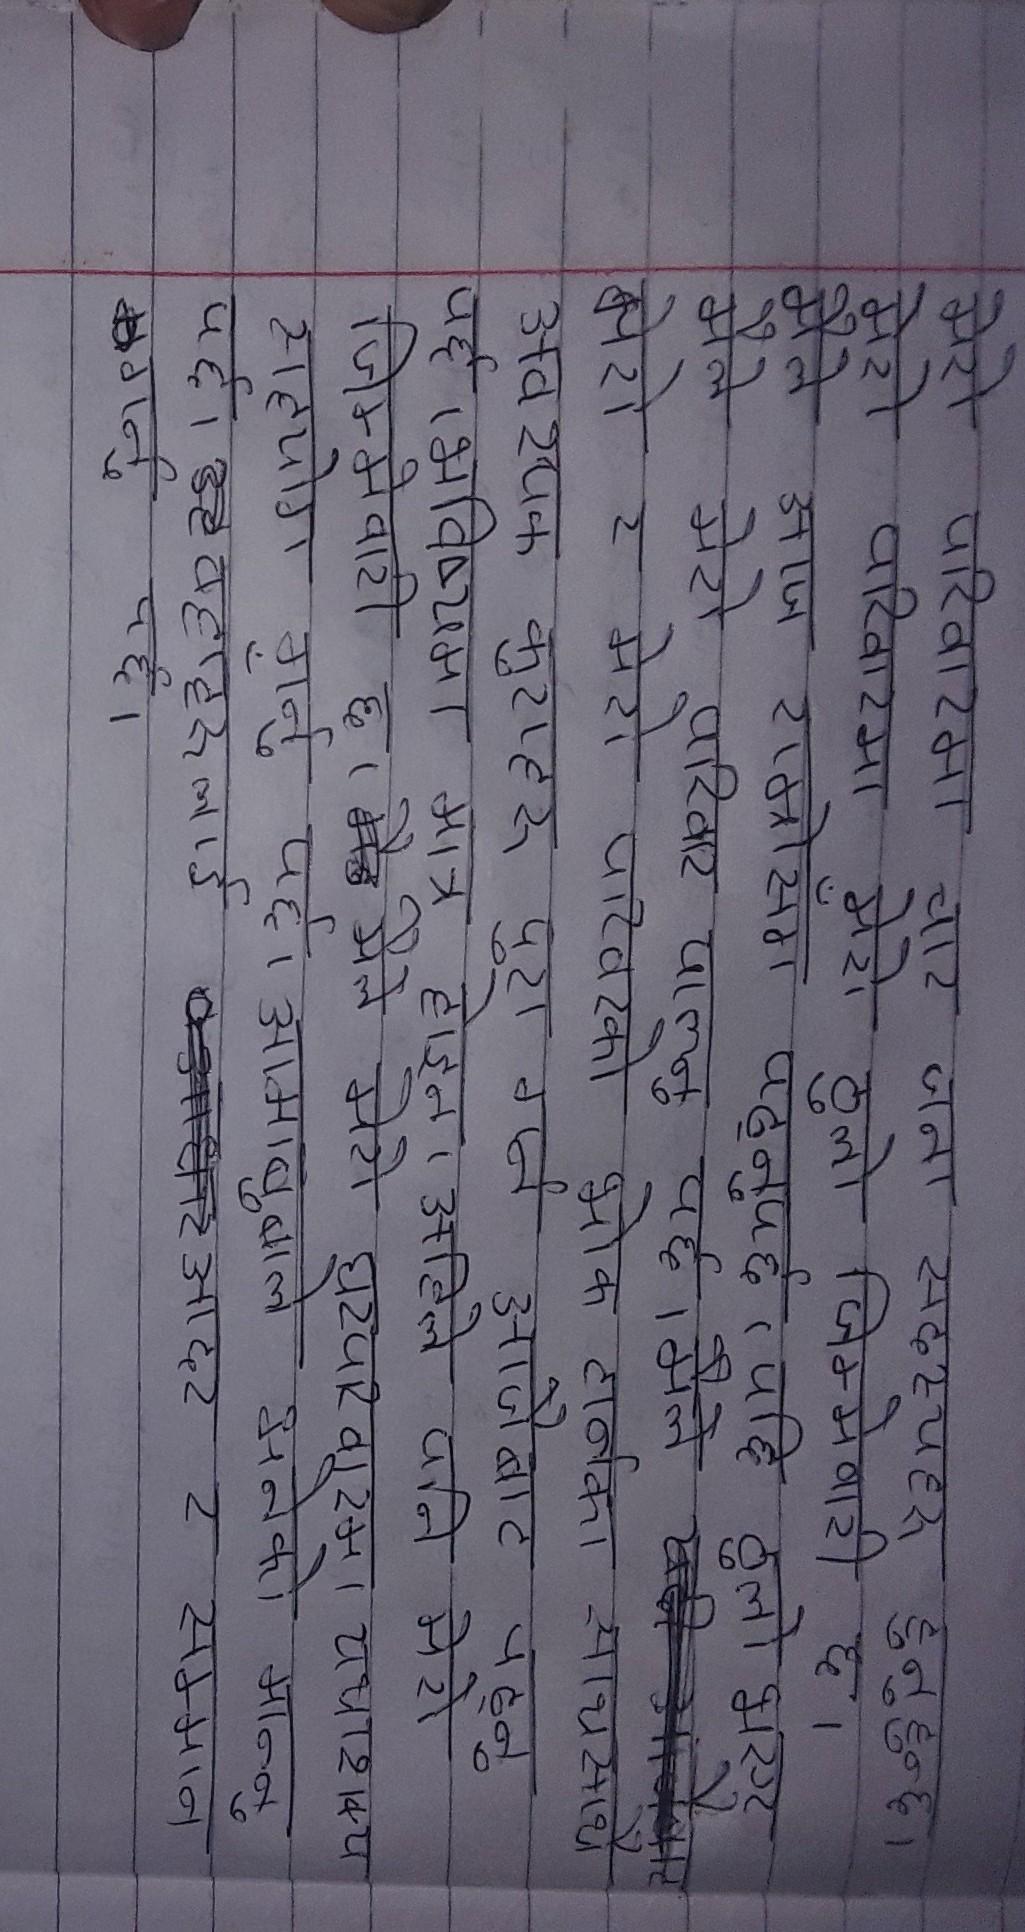 मेरो परिवारमा चार जना सदस्यहरु हुनुहुन्छ।
मेरो परिवारमा मेरो ठुलो जिम्मेवारी छ।
मैले आज राम्रोसँग पढ्नुपर्छ। पछि ठुलो भएर
मैले मेरो परिवार पाल्नु पर्छ। मैले
मेरो र मेरो परिवारको भोक टार्नका साथसाथै
आवश्यक कुराहरु पुरा गर्न आजैबाट पढ्नु
पर्छ। भविष्यमा मात्र होइन। अहिले पनि मेरो
जिम्मेवारी छ। मैले मेरो घरपरिवारमा यथाशक्य
सहयोग गर्नु पर्छ। आमाबुबाले भनेको मान्नु
पर्छ। उहाँहरुलाई आदर र सम्मान
गर्नु पर्छ।